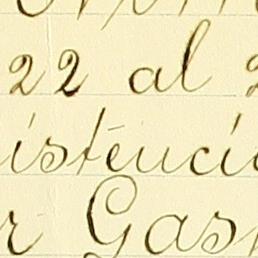 22 al 2
istenci
r Gas